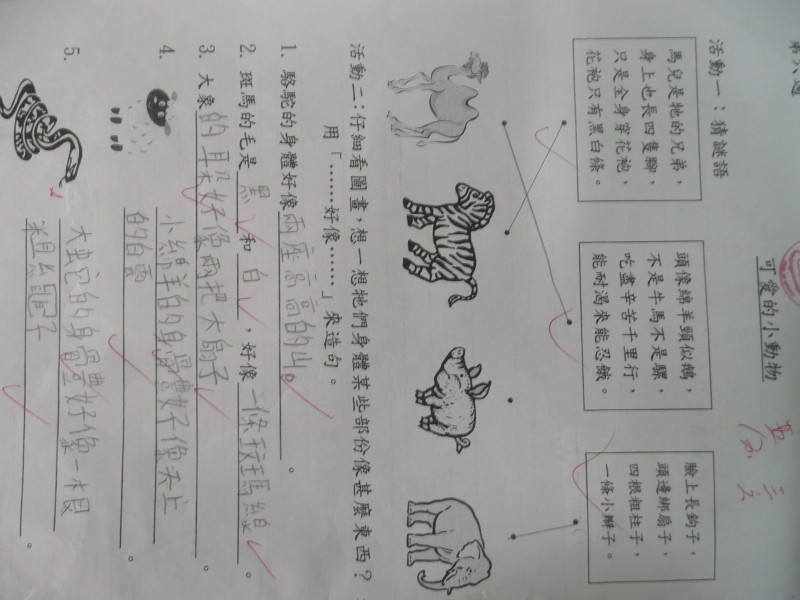 第六週
可愛的小動物
活動一：猜謎語
馬兒是牠的兄弟，
身上也長四隻腳，
只是全身穿花袍，
花袍只有黑白條。
頭像綿羊頸似鵝，
不是牛馬不是騾，
吃盡辛苦千里行，
能耐渴來能忍餓。
臉上長鉤子，
頭邊綁扇子，
四根粗柱子，
一條小辮子。
活動二：仔細看圖畫，想一想牠們身體某些部份像甚麼東西？
用「……好像……」來造句。
1. 駱駝的身體好像兩座高高的山。
2. 斑馬的毛是 黑 和 白 ，好像 一條斑馬線 。
3. 大象的耳朵好像兩把大扇子 。
4. 小綿羊的身體好像天上
的白雲 。
5. 大蛇的身體好像一根
粗 子 。